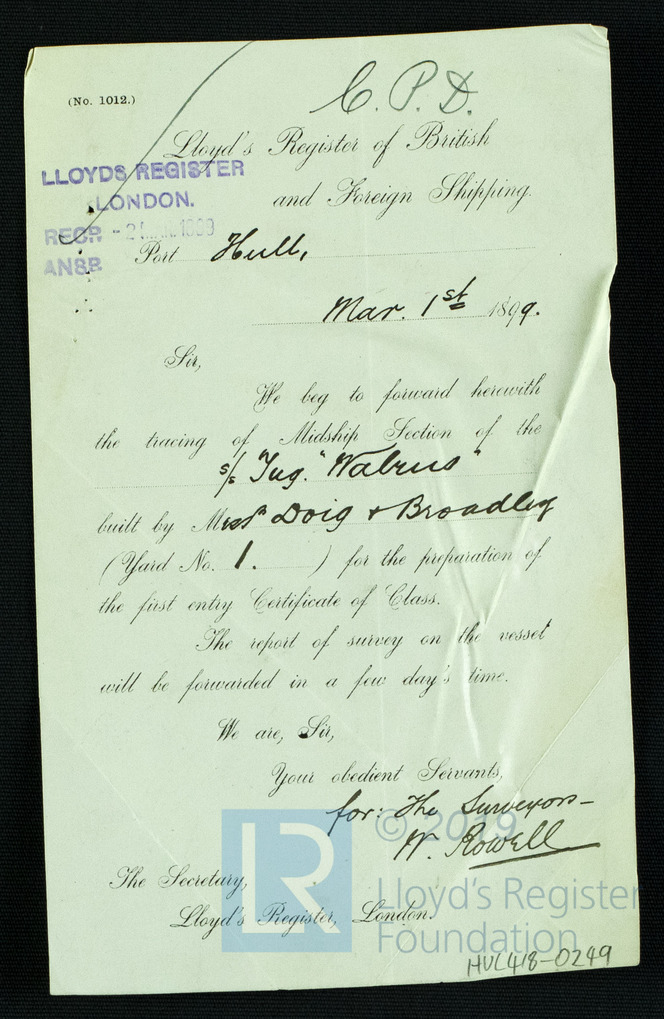 (No. 1012.)
C. P. D.
Lloyd's Register of British
and Foreign Shipping.
LLOYDS REGISTER
LONDON.
RECD -2 MAR 1899
ANSD
Port Hull,
Mar. 1st 1899.
Sir,
We beg to forward herewith
the tracing of Midship Section of the
s/s Tug. "Walrus"
built by Messrs Doig & Broadley
(Yard No. 1. ) for the preparation of
the first entry Certificate of Class.
The report of survey on the vessel
will be forwarded in a few day's time.
We are, Sir,
Your obedient Servants,
for: The Surveyors-
W. Rowell
The Secretary,
Lloyd's Register, London.
© 2019
LR
Lloyd's Register
Foundation
HUL418-0249